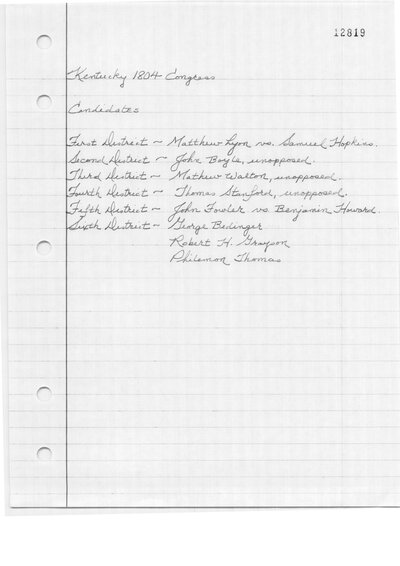 12819
Kentucky 1804 Congress
Candidates
First District ~ Matthew Lyon vs. Samuel Hopkins.
Second District ~ John Boyle, unopposed.
Third District ~ Mathew Walton, unopposed.
Fourth District ~ Thomas Stanford, unopposed.
Fifth District ~ John Fowler vs. Benjamin Howard.
Sixth District ~ George Bedinger
Robert H. Grayson
Philemon Thomas